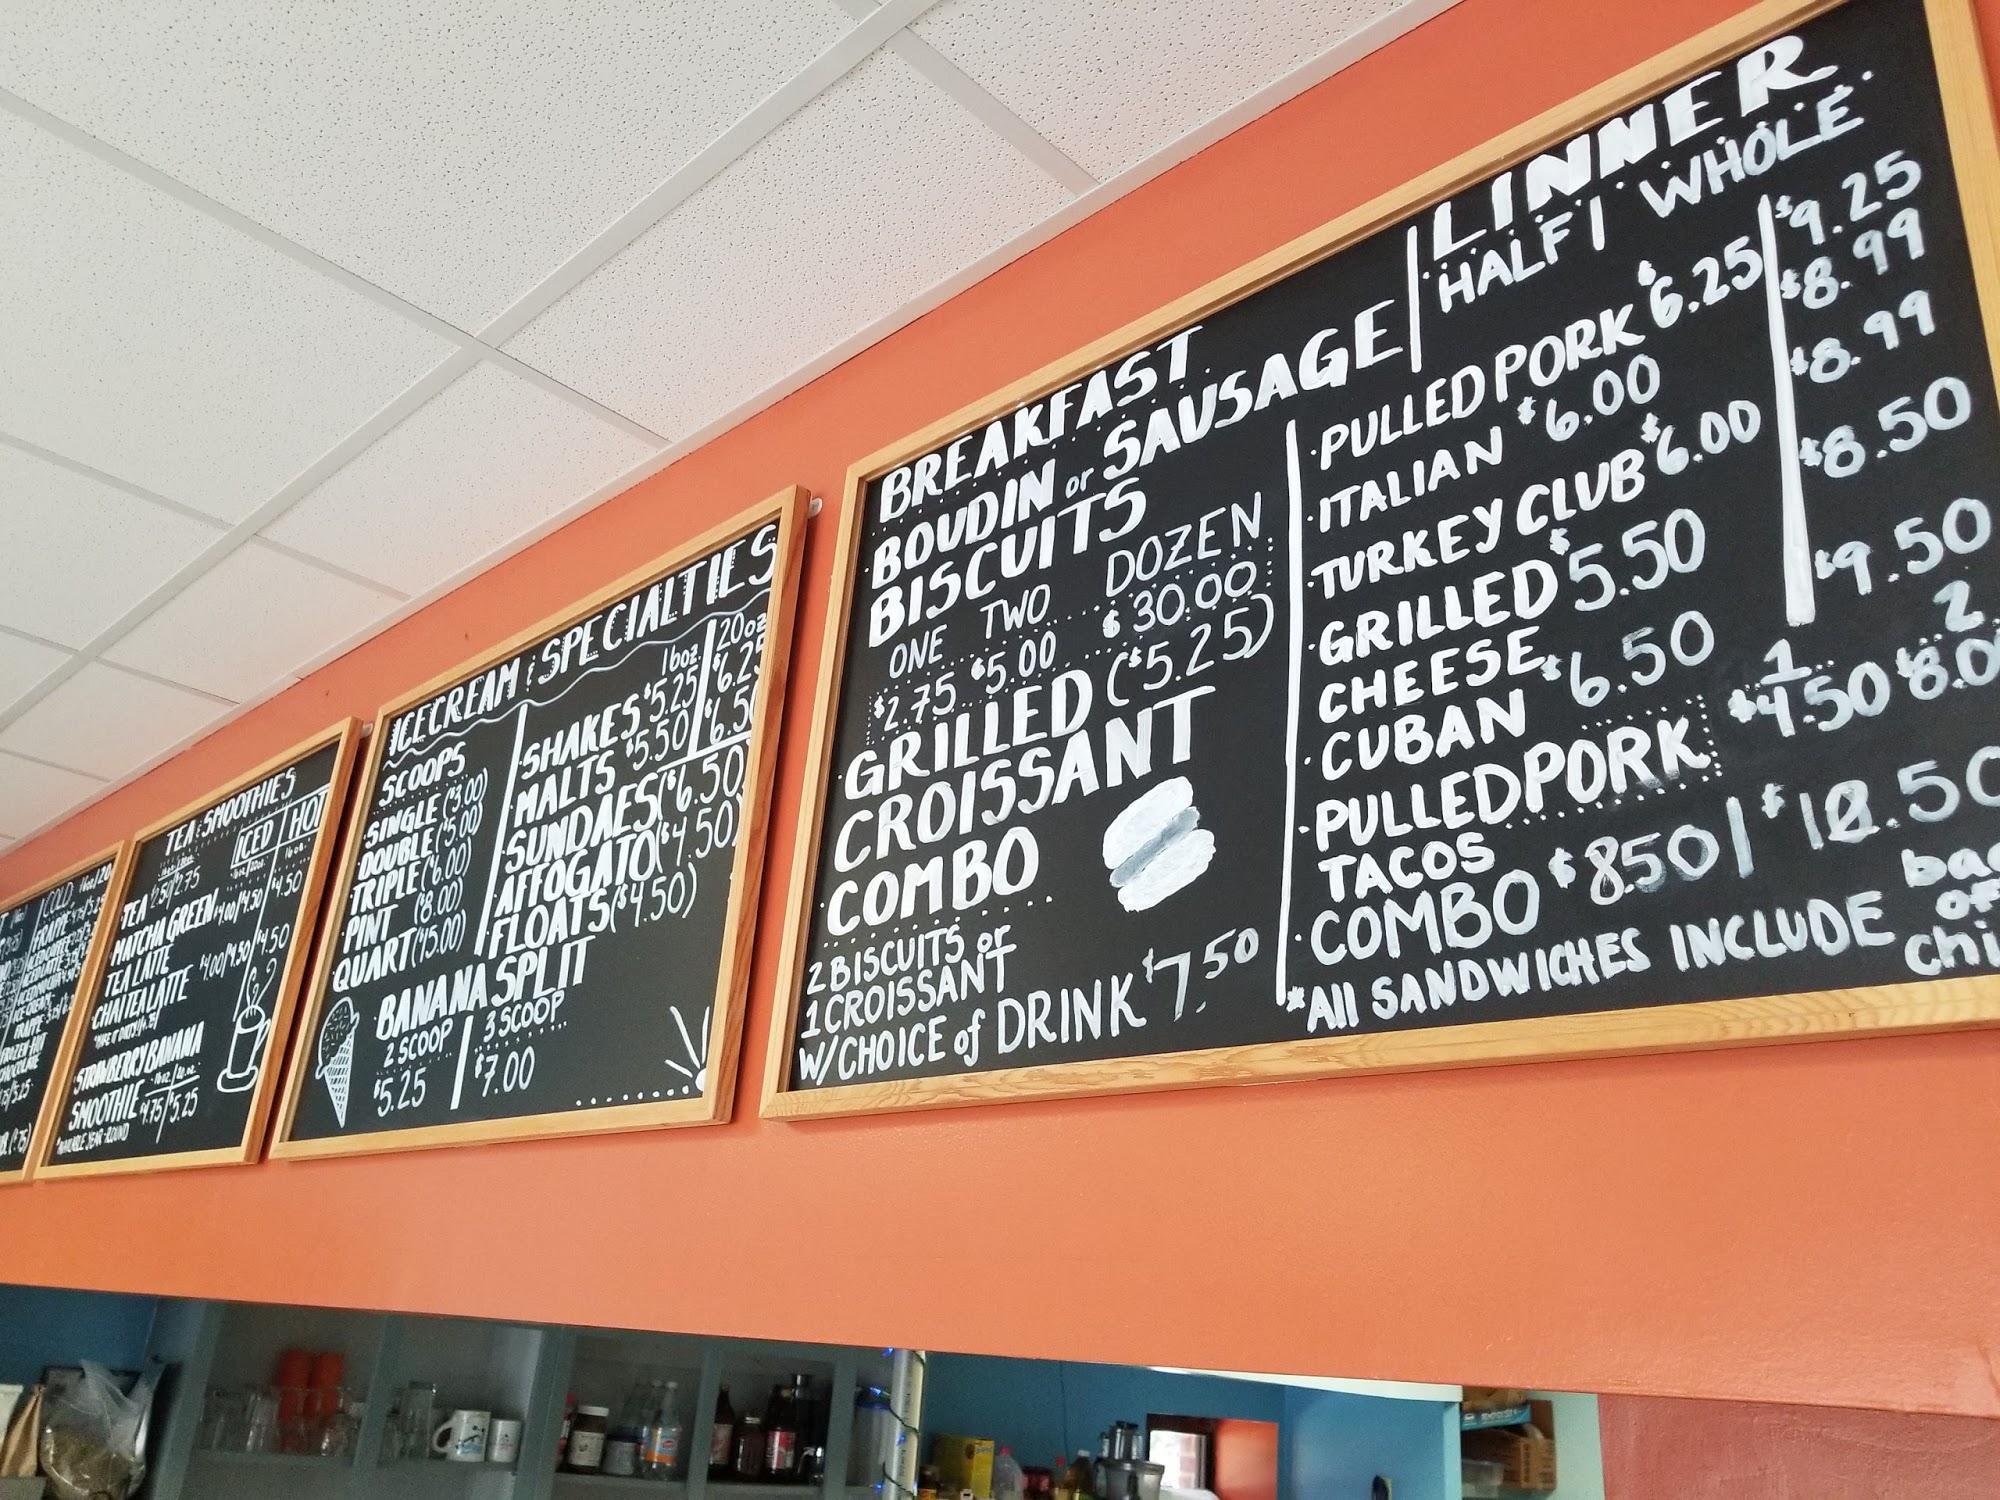 COLD 16oz/20
FRAPPE
ICED COFFEE
FROZEN HOT
CHOCOLATE
TEA & SMOOTHIES
ICED / HOT
TEA $2.50/2.75
MATCHA GREEN $4.00/$4.50 / $4.50
TEA LATTE
CHAI TEA LATTE $4.00/$4.50 / $4.50
STRAWBERRY BANANA
SMOOTHIE $4.75/$5.25
*AVAILABLE YEAR-ROUND
ICE CREAM & SPECIALTIES
SCOOPS
SINGLE ($3.00)
DOUBLE ($5.00)
TRIPLE ($6.00)
PINT ($8.00)
QUART ($15.00)
16oz. | 20oz
SHAKES $5.25 $6.25
MALTS $5.50 $6.50
SUNDAES ($6.50)
AFFOGATO ($4.50)
FLOATS ($4.50)
BANANA SPLIT
2 SCOOP 3 SCOOP
$5.25 $7.00
BREAKFAST
BOUDIN or SAUSAGE
BISCUITS
ONE TWO DOZEN
$2.75 $5.00 $30.00
GRILLED ($5.25)
CROISSANT
COMBO
2 BISCUITS or
1 CROISSANT
W/CHOICE of DRINK $7.50
LINNER
HALF | WHOLE
PULLED PORK $6.25 $9.25
ITALIAN $6.00 $8.99
TURKEY CLUB $6.00 $8.99
GRILLED $5.50 $8.50
CHEESE
CUBAN $6.50 $9.50
1 2
PULLED PORK $4.50 $8.0
TACOS
COMBO $8.50 | $10.50
*All SANDWICHES INCLUDE bag
of
chi